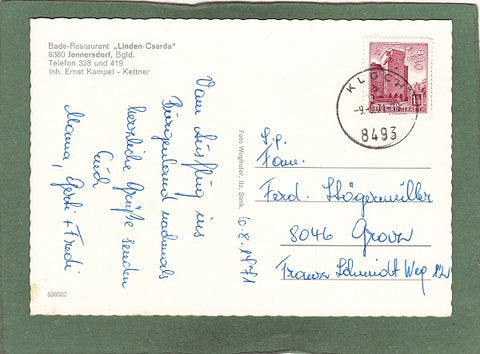 Bade-Restaurant „Linden-Csarda"
8380 Jennersdorf, Bgld.
Telefon 328 und 419
Inh. Ernst Kampel - Kettner
Vom Ausflug ins
Burgenland nochmals
herzliche Grüße senden
Euch
Mama, Gerti + Fredi
10.8.1971
Foto Weghofer, Ilz, Stmk.
KLÖCH
8493
Fam.
Ferd. Högenmüller
8046 Graz
Franz Schmidt Weg 12
838002